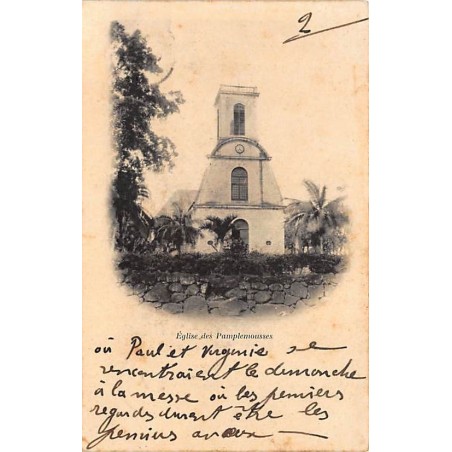 2
Église des Pamplemousses
où Paul et Virginie se
rencontraient le dimanche
à la messe où les premiers
regards durent être les
premiers aveux —